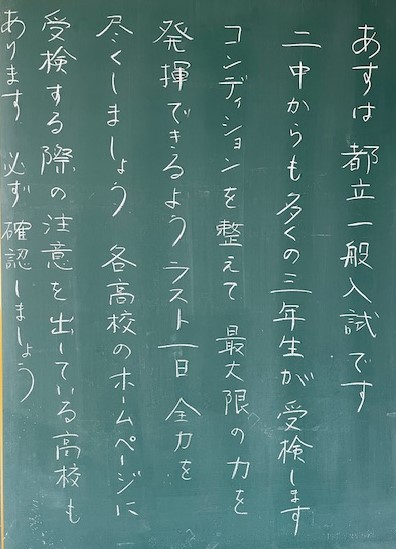 あすは 都立一般入試です
二中からも多くの三年生が受検します
コンディションを整えて 最大限の力を
発揮できるよう ラスト一日 全力を
尽くしましょう 各高校のホームページに
受検する際の注意を出している高校も
あります 必ず確認しましょう